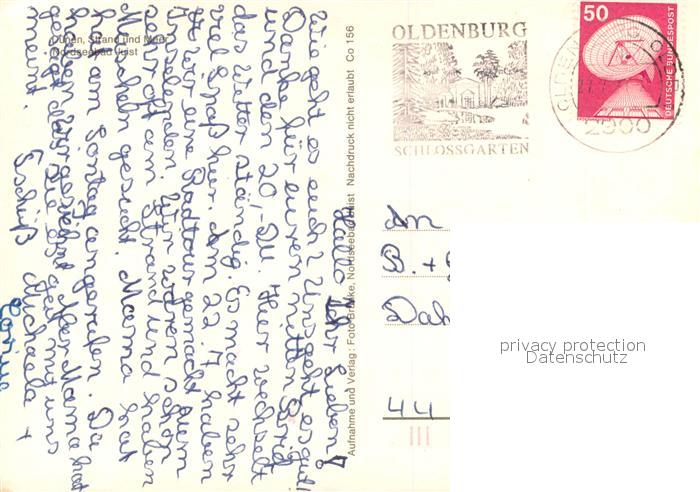 Dünen, Strand und Meer
Nordseebad Juist
Hallo Ihr Lieben!
Wie geht es euch? Uns geht es gut!
Danke für euren netten Brief
und den 20,- DM. Hier wechselt
das Wetter ständig. Es macht sehr
viel Spaß hier. Am 22.7 haben
wir eine Radtour gemacht zum
Wir waren schon
sehr oft am Strand und haben
Muscheln gesucht. Mama hat
am Sontag angerufen. Da
haben wir
gesagt das sie gut mit uns
meint.
Tschüß Michaela +
Corinna
Aufnahme und Verlag: Foto Brinke, Nordseebad Juist Nachdruck nicht erlaubt Co 156
OLDENBURG
SCHLOSSGARTEN
OLDENBURG
2900
50
DEUTSCHE BUNDESPOST
An
B. +
Dah
44
III
privacy protection
Datenschutz